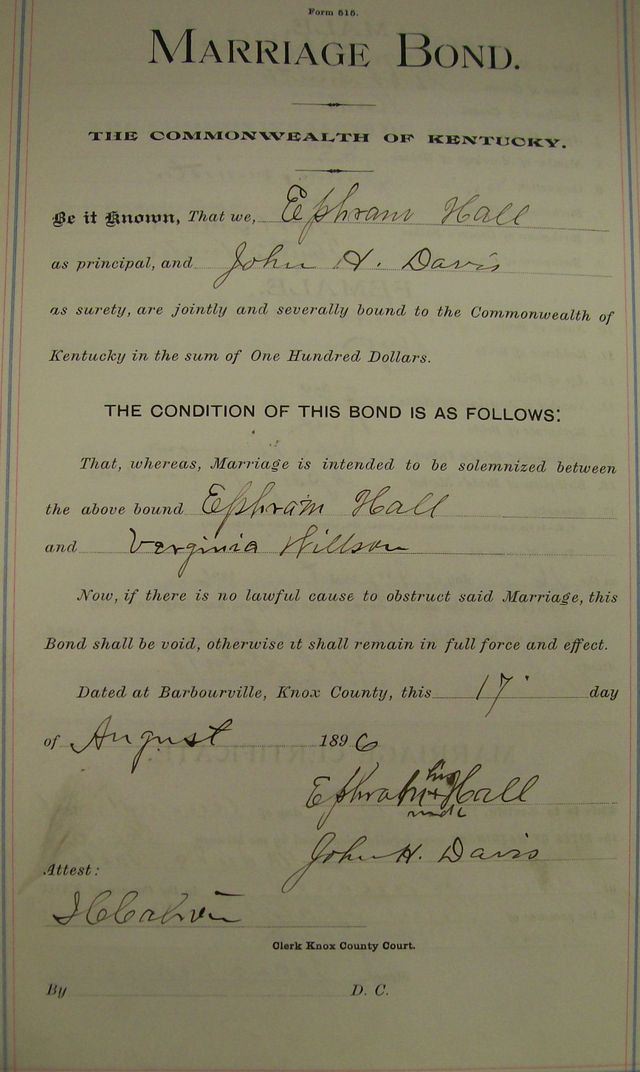 Form 515.
MARRIAGE BOND.
THE COMMONWEALTH OF KENTUCKY.
Be it Known, That we, Ephram Hall
as principal, and John H. Davis
as surety, are jointly and severally bound to the Commonwealth of
Kentucky in the sum of One Hundred Dollars.
THE CONDITION OF THIS BOND IS AS FOLLOWS:
That, whereas, Marriage is intended to be solemnized between
the above bound Ephram Hall
and Verginia Willson
Now, if there is no lawful cause to obstruct said Marriage, this
Bond shall be void, otherwise it shall remain in full force and effect.
Dated at Barbourville, Knox County, this 17 day
of August 1896
his
Ephram x Hall
John H. Davis
Attest:
Clerk Knox County Court.
By D. C.